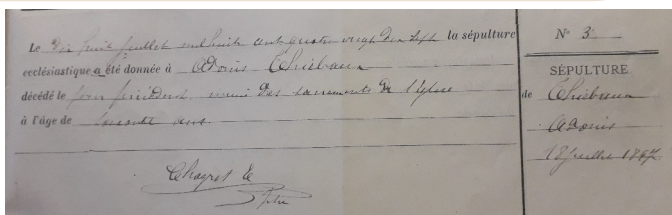 Le dix huit juillet mil huit cent quatre vingt dix sept la sépulture
ecclésiastique a été donnée à Adonis Thiébaux
décédé le jour précédent, muni des sacrements de l'Eglise
à l'âge de soixante ans.
N° 3
SÉPULTURE
de Thiébaux
Adonis
18 juillet 1897